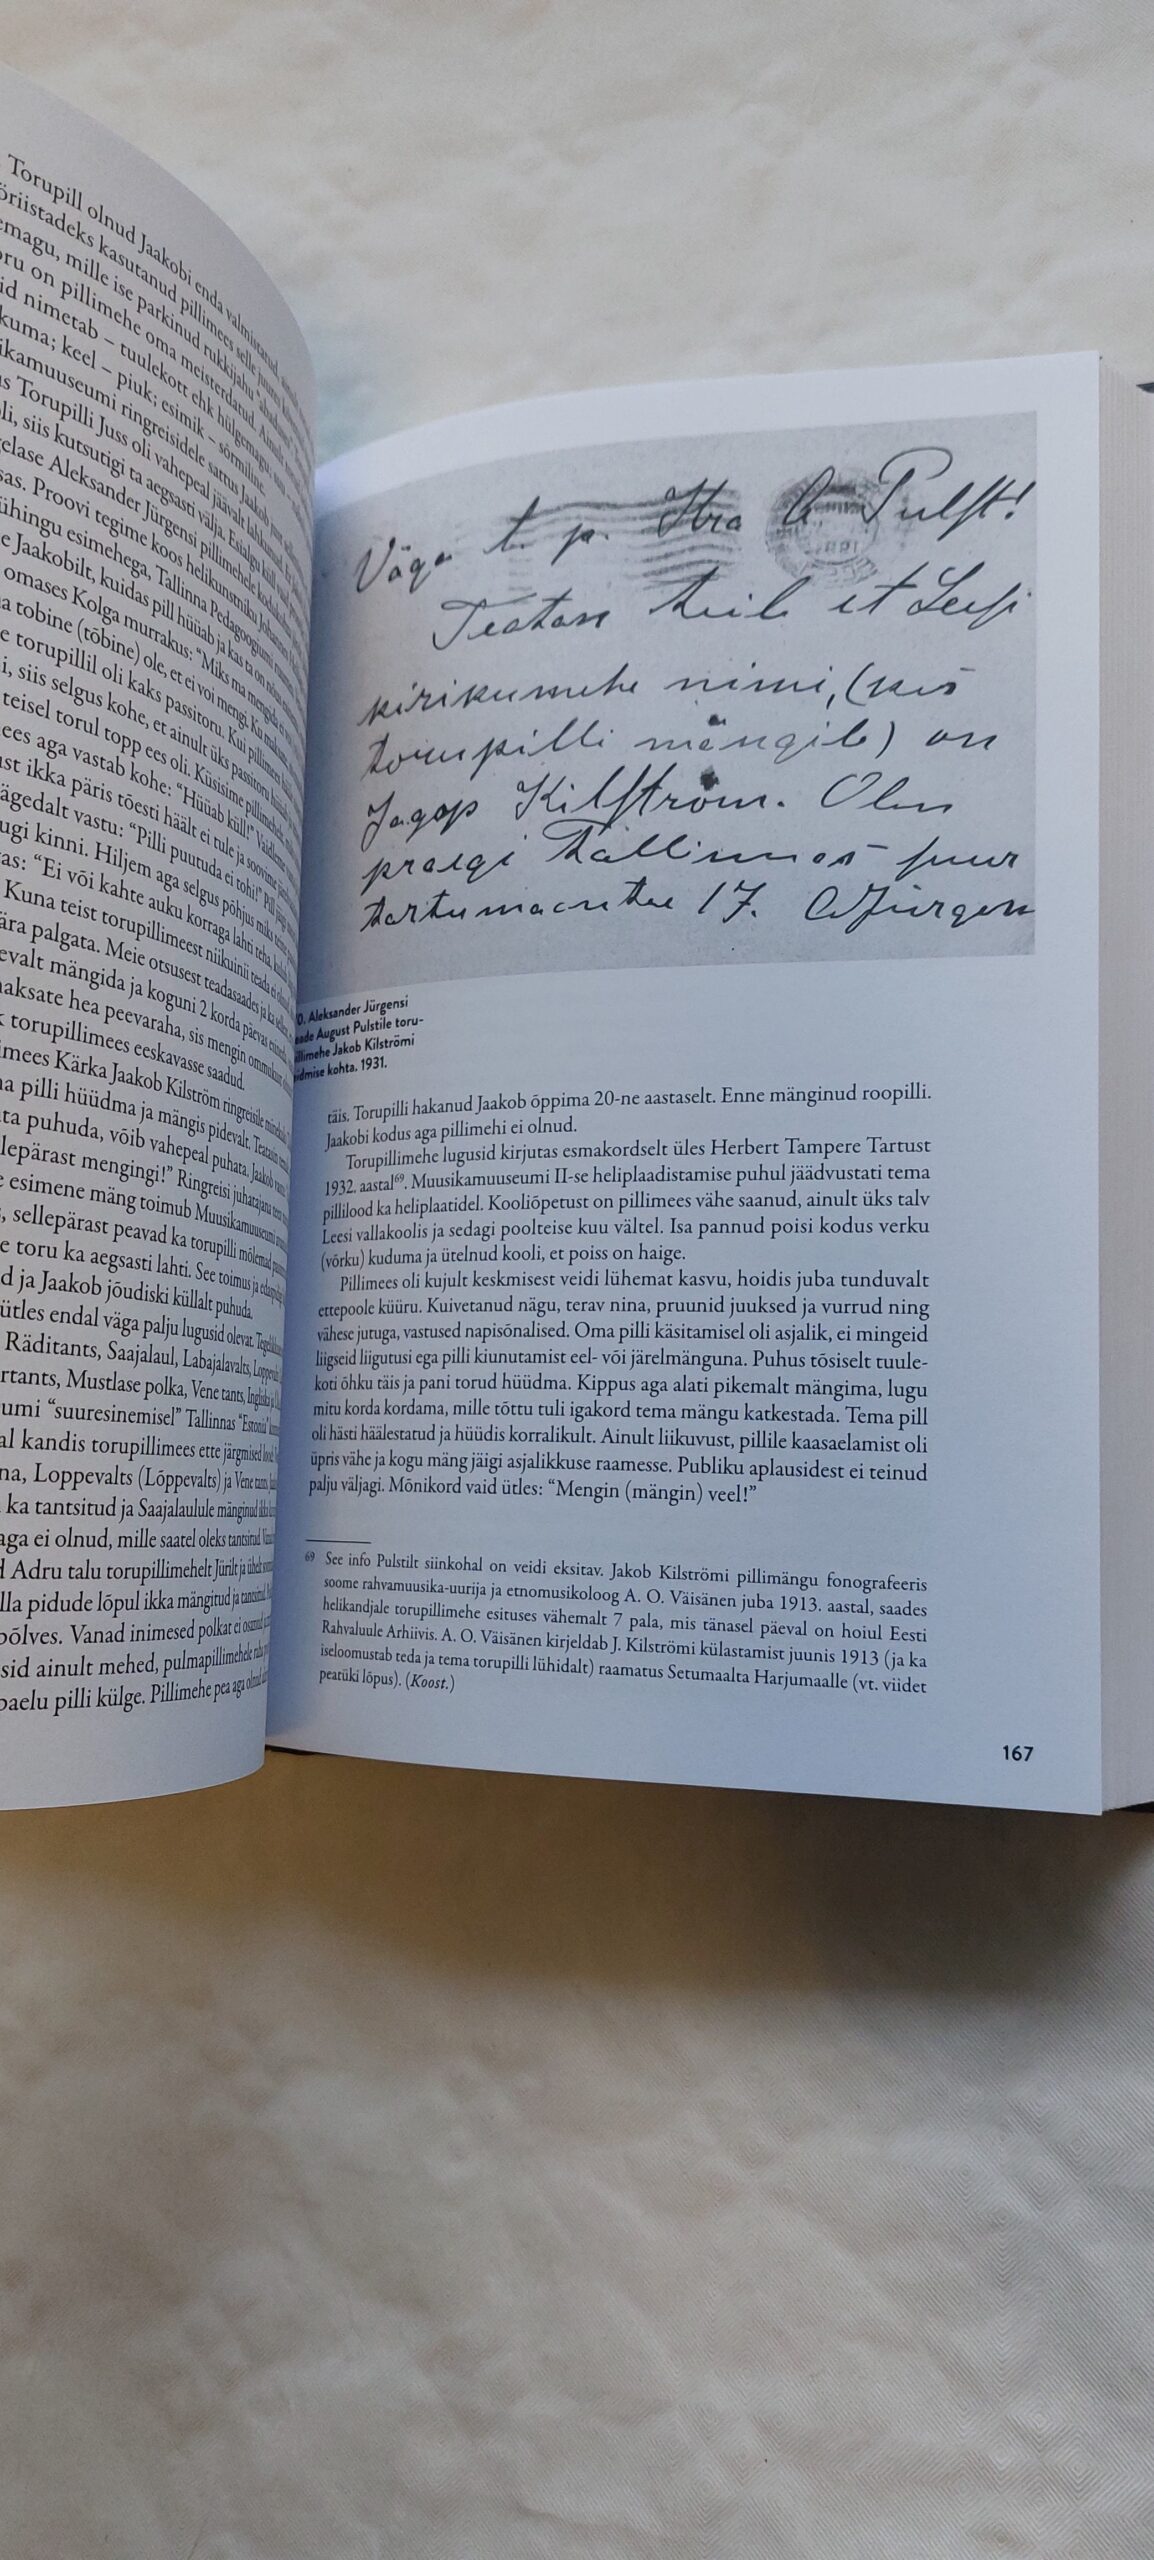 Torupill olnud Jaakobi enda valmistatud,
öriistadeks kasutanud pillimees selle juures
emagu, mille ise parkinud rukkijahu
oru on pillimehe oma meisterdatud. Ainult
id nimetab – tuulekott ehk hülgemagu;
kuma; keel – piuk; esimik – sõrmiline.
ikamuuseumi ringreisidele sattus Jaakob just
us Torupilli Juss oli vahepeal jäävalt lahkunud.
oli, siis kutsutigi ta aegsasti välja. Esialgu küll
gelase Aleksander Jürgensi pillimehele
sas. Proovi tegime koos helikunstniku Johannes
ühingu esimehega, Tallinna Pedagoogiumi
e Jaakobilt, kuidas pill hüüab ja kas ta on
omases Kolga murrakus: “Miks ma mengida ei
na tobine (tõbine) ole, et ei voi mengi. Ku
e torupillil oli kaks passitoru. Kui pillimees
i, siis selgus kohe, et ainult üks passitoru
teisel torul topp ees oli. Küsisime pillimehelt,
ees aga vastab kohe: “Hüüab küll!” Vaidleme
ust ikka päris tõesti häält ei tule ja soovime
ägedalt vastu: “Pilli puutuda ei tohi!” Pill
ugi kinni. Hiljem aga selgus põhjus miks
as: “Ei või kahte auku korraga lahti teha,
Kuna teist torupillimeest niikuinii teada ei olnud
ära palgata. Meie otsusest teadasaades ja ka
evalt mängida ja koguni 2 korda päevas
aksate hea peevaraha, sis mengin ommukust
k torupillimees eeskavasse saadud.
imees Kärka Jaakob Kilström ringreisile
na pilli hüüdma ja mängis pidevalt. Teatasin
ata puhuda, võib vahepeal puhata. Jaakob
ellepärast mengingi!” Ringreisi juhatajana
e esimene mäng toimub Muusikamuuseumi
s, sellepärast peavad ka torupilli mõlemad
e toru ka aegsasti lahti. See toimus ja
d ja Jaakob jõudiski küllalt puhuda.
ütles endal väga palju lugusid olevat.
Räditants, Saajalaul, Labajalavalts,
rtants, Mustlase polka, Vene tants,
umi “suuresinemisel” Tallinnas “Estonia”
al kandis torupillimees ette järgmised
na, Loppevalts (Lõppevalts) ja Vene tants,
ka tantsitud ja Saajalaulule mänginud ikka
aga ei olnud, mille saatel oleks tantsitud.
d Adru talu torupillimehelt Jürilt ja ühelt
lla pidude lõpul ikka mängitud ja tantsitud.
põlves. Vanad inimesed polkat ei osanud
sid ainult mehed, pulmapillimehele
paelu pilli külge. Pillimehe pea aga olnud
Väga t. p. Hra A Pulst!
Teatan teile et Leesi
kirikumehe nimi, (kes
torupilli mängib) on
Jagop Kilström. Olen
praegi Tallinnas suur
tartumaantee 17. AJürgen
0. Aleksander Jürgensi
eade August Pulstile toru-
illimehe Jakob Kilströmi
idmise kohta. 1931.
täis. Torupilli hakanud Jaakob õppima 20-ne aastaselt. Enne mänginud roopilli.
Jaakobi kodus aga pillimehi ei olnud.
Torupillimehe lugusid kirjutas esmakordselt üles Herbert Tampere Tartust
1932. aastal⁶⁹. Muusikamuuseumi II-se heliplaadistamise puhul jäädvustati tema
pillilood ka heliplaatidel. Kooliõpetust on pillimees vähe saanud, ainult üks talv
Leesi vallakoolis ja sedagi poolteise kuu vältel. Isa pannud poisi kodus verku
(võrku) kuduma ja ütelnud kooli, et poiss on haige.
Pillimees oli kujult keskmisest veidi lühemat kasvu, hoidis juba tunduvalt
ettepoole küüru. Kuivetanud nägu, terav nina, pruunid juuksed ja vurrud ning
vähese jutuga, vastused napisõnalised. Oma pilli käsitamisel oli asjalik, ei mingeid
liigseid liigutusi ega pilli kiunutamist eel- või järelmänguna. Puhus tõsiselt tuule-
koti õhku täis ja pani torud hüüdma. Kippus aga alati pikemalt mängima, lugu
mitu korda kordama, mille tõttu tuli igakord tema mängu katkestada. Tema pill
oli hästi häälestatud ja hüüdis korralikult. Ainult liikuvust, pillile kaasaelamist oli
üpris vähe ja kogu mäng jäigi asjalikkuse raamesse. Publiku aplausidest ei teinud
palju väljagi. Mõnikord vaid ütles: “Mengin (mängin) veel!”
69 See info Pulstilt siinkohal on veidi eksitav. Jakob Kilströmi pillimängu fonografeeris
soome rahvamuusika-uurija ja etnomusikoloog A. O. Väisänen juba 1913. aastal, saades
helikandjale torupillimehe esituses vähemalt 7 pala, mis tänasel päeval on hoiul Eesti
Rahvaluule Arhiivis. A. O. Väisänen kirjeldab J. Kilströmi külastamist juunis 1913 (ja ka
iseloomustab teda ja tema torupilli lühidalt) raamatus Setumaalta Harjumaalle (vt. viidet
peatüki lõpus). (Koost.)
167